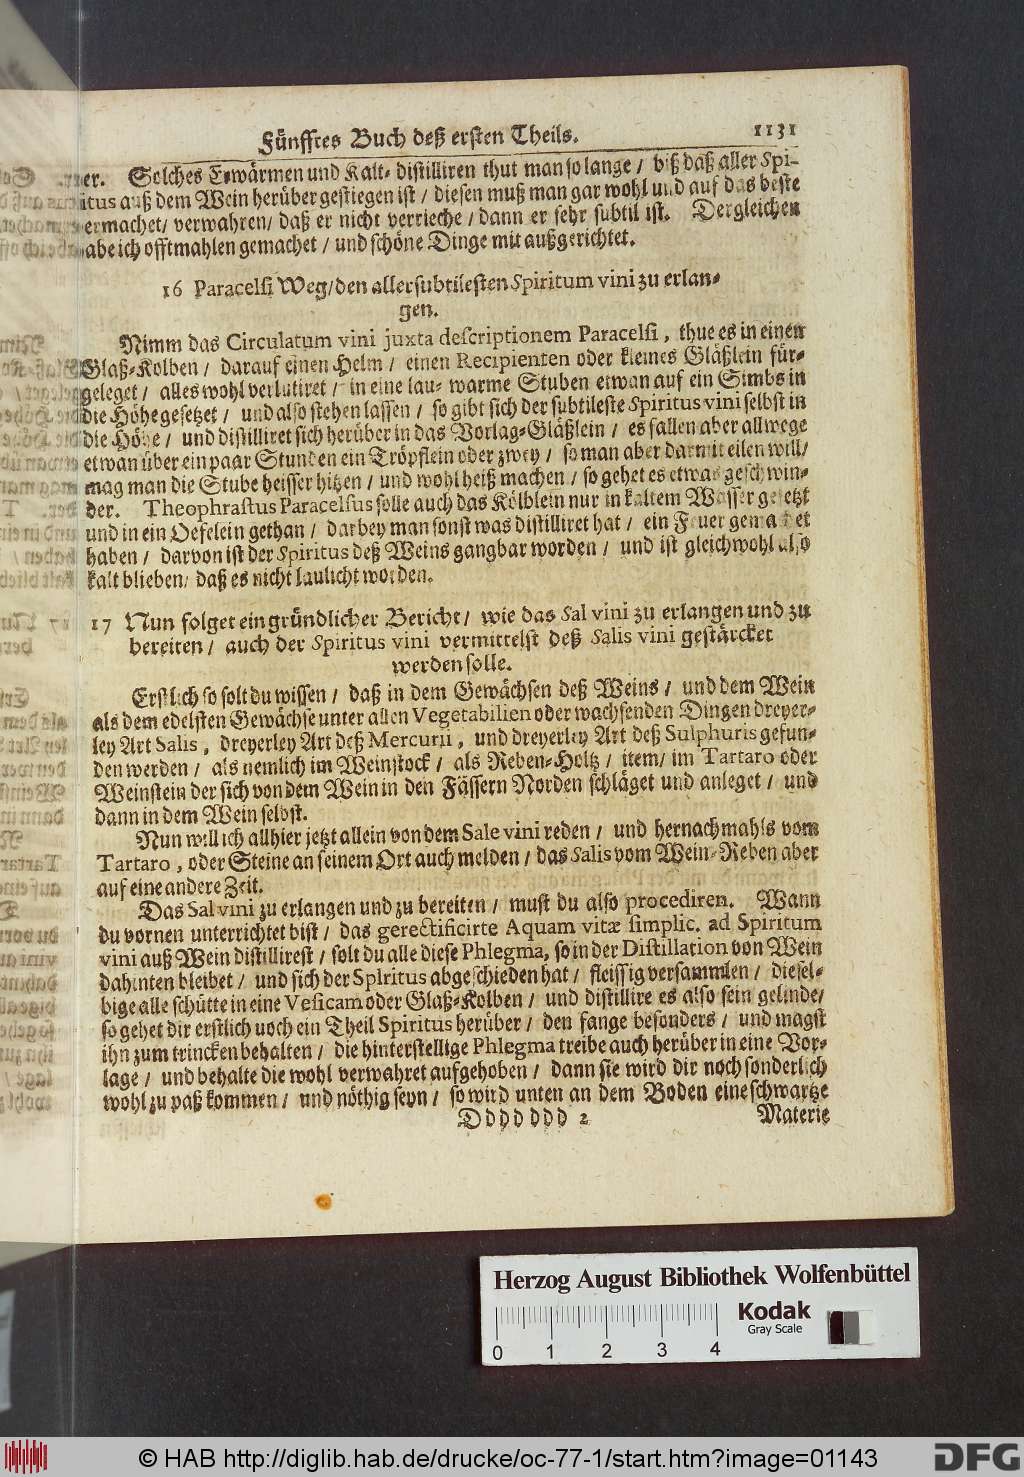 Fünfftes Buch deß ersten Theils. 1131
er. Solches Erwärmen und Kalt-distilliren thut man so lange / biß daß aller Spi-
itus auß dem Wein herüber gestiegen ist / diesen muß man gar wohl und auf das beste
ermachet / verwahren / daß er nicht verrieche / dann er sehr subtil ist. Dergleichen
abe ich offtmahlen gemachet / und schöne Dinge mit außgerichtet.
16 Paracelsi Weg / den allersubtilesten Spiritum vini zu erlan-
gen.
Nimm das Circulatum vini juxta descriptionem Paracelsi, thue es in einen
Glaß-Kolben / darauf einen Helm / einen Recipienten oder kleines Gläßlein für-
geleget / alles wohl verlutiret / in eine lau-warme Stuben etwan auf ein Simbs in
die Höhe gesetzet / und also stehen lassen / so gibt sich der subtileste Spiritus vini selbst in
die Höhe / und distilliret sich herüber in das Vorlag-Gläßlein / es fallen aber allwege
etwan über ein paar Stunden ein Tröpflein oder zwey / so man aber darmit eilen will /
mag man die Stube heisser hitzen / und wohl heiß machen / so gehet es etwas geschwin-
der. Theophrastus Paracelsus solle auch das Kölblein nur in kaltem Wasser gesetzt
und in ein Oefelein gethan / darbey man sonst was distilliret hat / ein Feuer gemachet
haben / darvon ist der Spiritus deß Weins gangbar worden / und ist gleichwohl also
kalt blieben / daß es nicht laulicht worden.
17 Nun folget ein gründlicher Bericht / wie das Sal vini zu erlangen und zu
bereiten / auch der Spiritus vini vermittelst deß Salis vini gestärcket
werden solle.
Erstlich so solt du wissen / daß in dem Gewächsen deß Weins / und dem Wein
als dem edelsten Gewächse unter allen Vegetabilien oder wachsenden Dingen dreyer-
ley Art Salis, dreyerley Art deß Mercurii, und dreyerley Art deß Sulphuris gefun-
den werden / als nemlich im Weinstock / als Reben-Holtz / item / im Tartaro oder
Weinstein der sich von dem Wein in den Fässern Norden schläget und anleget / und
dann in dem Wein selbst.
Nun will ich allhier jetzt allein von dem Sale vini reden / und hernachmahls vom
Tartaro, oder Steine an seinem Ort auch melden / das Salis vom Wein-Reben aber
auf eine andere Zeit.
Das Sal vini zu erlangen und zu bereiten / must du also procediren. Wann
du vornen unterrichtet bist / das gerectificirte Aquam vitæ simplic. ad Spiritum
vini auß Wein distillirest / solt du alle diese Phlegma, so in der Distillation von Wein
dahinten bleibet / und sich der Spiritus abgeschieden hat / fleissig versammlen / diesel-
bige alle schütte in eine Vesicam oder Glaß-Kolben / und distillire es also fein gelinde /
so gehet dir erstlich uoch ein Theil Spiritus herüber / den fange besonders / und magst
ihn zum trincken behalten / die hinterstellige Phlegma treibe auch herüber in eine Vor-
lage / und behalte die wohl verwahret aufgehoben / dann sie wird dir noch sonderlich
wohl zu paß kommen / und nöthig seyn / so wird unten an dem Boden eine schwartze
Dddd ddd 2 Materie
Herzog August Bibliothek Wolfenbüttel
Kodak
Gray Scale
0 1 2 3 4
© HAB http://diglib.hab.de/drucke/oc-77-1/start.htm?image=01143
DFG